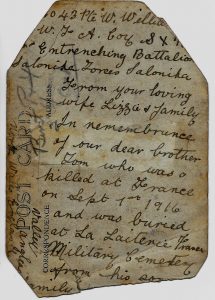 043 Pte W. Willia
W. F A. Coy S & M
Entrenching Battalio
Salonika Forces Salonika
From your loving
wife Lizzie & family
In remembrance
of our dear brother
Tom who was
killed at France
on Sept 1rd 1916
and was buried
at La Laitence France
Military Cemetery
from his
family
POST CARD
ADDRESS
CORRESPONDENCE
Wales